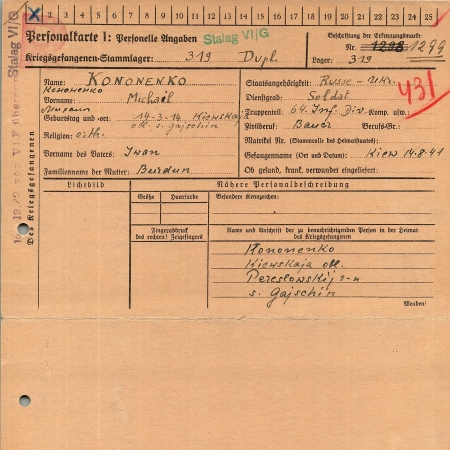 X 2 3 4 5 6 7 8 9 10 11 12 13 14 15 16 17 18 19 20 21 22 23 24 25
Personalkarte I: Personelle Angaben
Stalag VI/G
Beschriftung der Erkennungsmarke
Kriegsgefangenen-Stammlager: 319 Dupl.
Nr. 1298 1299
Lager: 319
Stalag VI/G
Des Kriegsgefangenen
Name: KONONENKO
Кононенко
Vorname: Michail
Михаил
Geburtstag und -ort: 14-3-14 Kiewskaj
obl. s. gajschin
Religion: orth.
Vorname des Vaters: Iwan
Familienname der Mutter: Burdun
Staatsangehörigkeit: Russe - Ukr.
Dienstgrad: Soldat
431
Truppenteil: 64. Inf. Div. Komp. usw.:
Zivilberuf: Bauer Berufs-Gr.:
Matrikel Nr. (Stammrolle des Heimatstaates):
Gefangennahme (Ort und Datum): Kiew 14.8.41
Ob gesund, krank, verwundet eingeliefert:
Lichtbild
Nähere Personalbeschreibung
Größe
Haarfarbe
Besondere Kennzeichen:
Fingerabdruck
des rechten! Zeigefingers
Name und Anschrift der zu benachrichtigenden Person in der Heimat
des Kriegsgefangenen
Kononenko
Kiewskaja obl.
Pereslowskij r-n
s. Gajschin
Wenden!